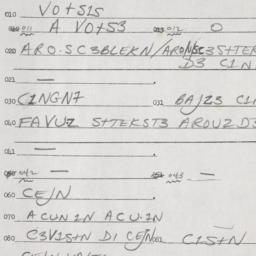 010 VO+S1S
011 A VO+S3 012 O
020 ARO.SC3BLEKN/ARONSC3S+TER
D3 C1N
021 —
030 C1NGN7 031 BAJZ3 C1
040 FAVUZ S+TEKST3 AROUZ D3
041 —
042 — 043 —
060 CEJN
070 ACUN1N ACU.1N
080 C3V1S+N D1 CEJN 081 C1S+N